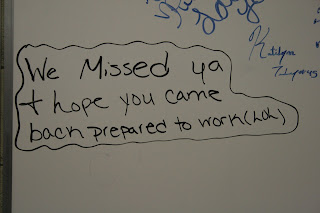 We Missed ya
+ hope you came
back prepared to work (LOL)
Katelynn